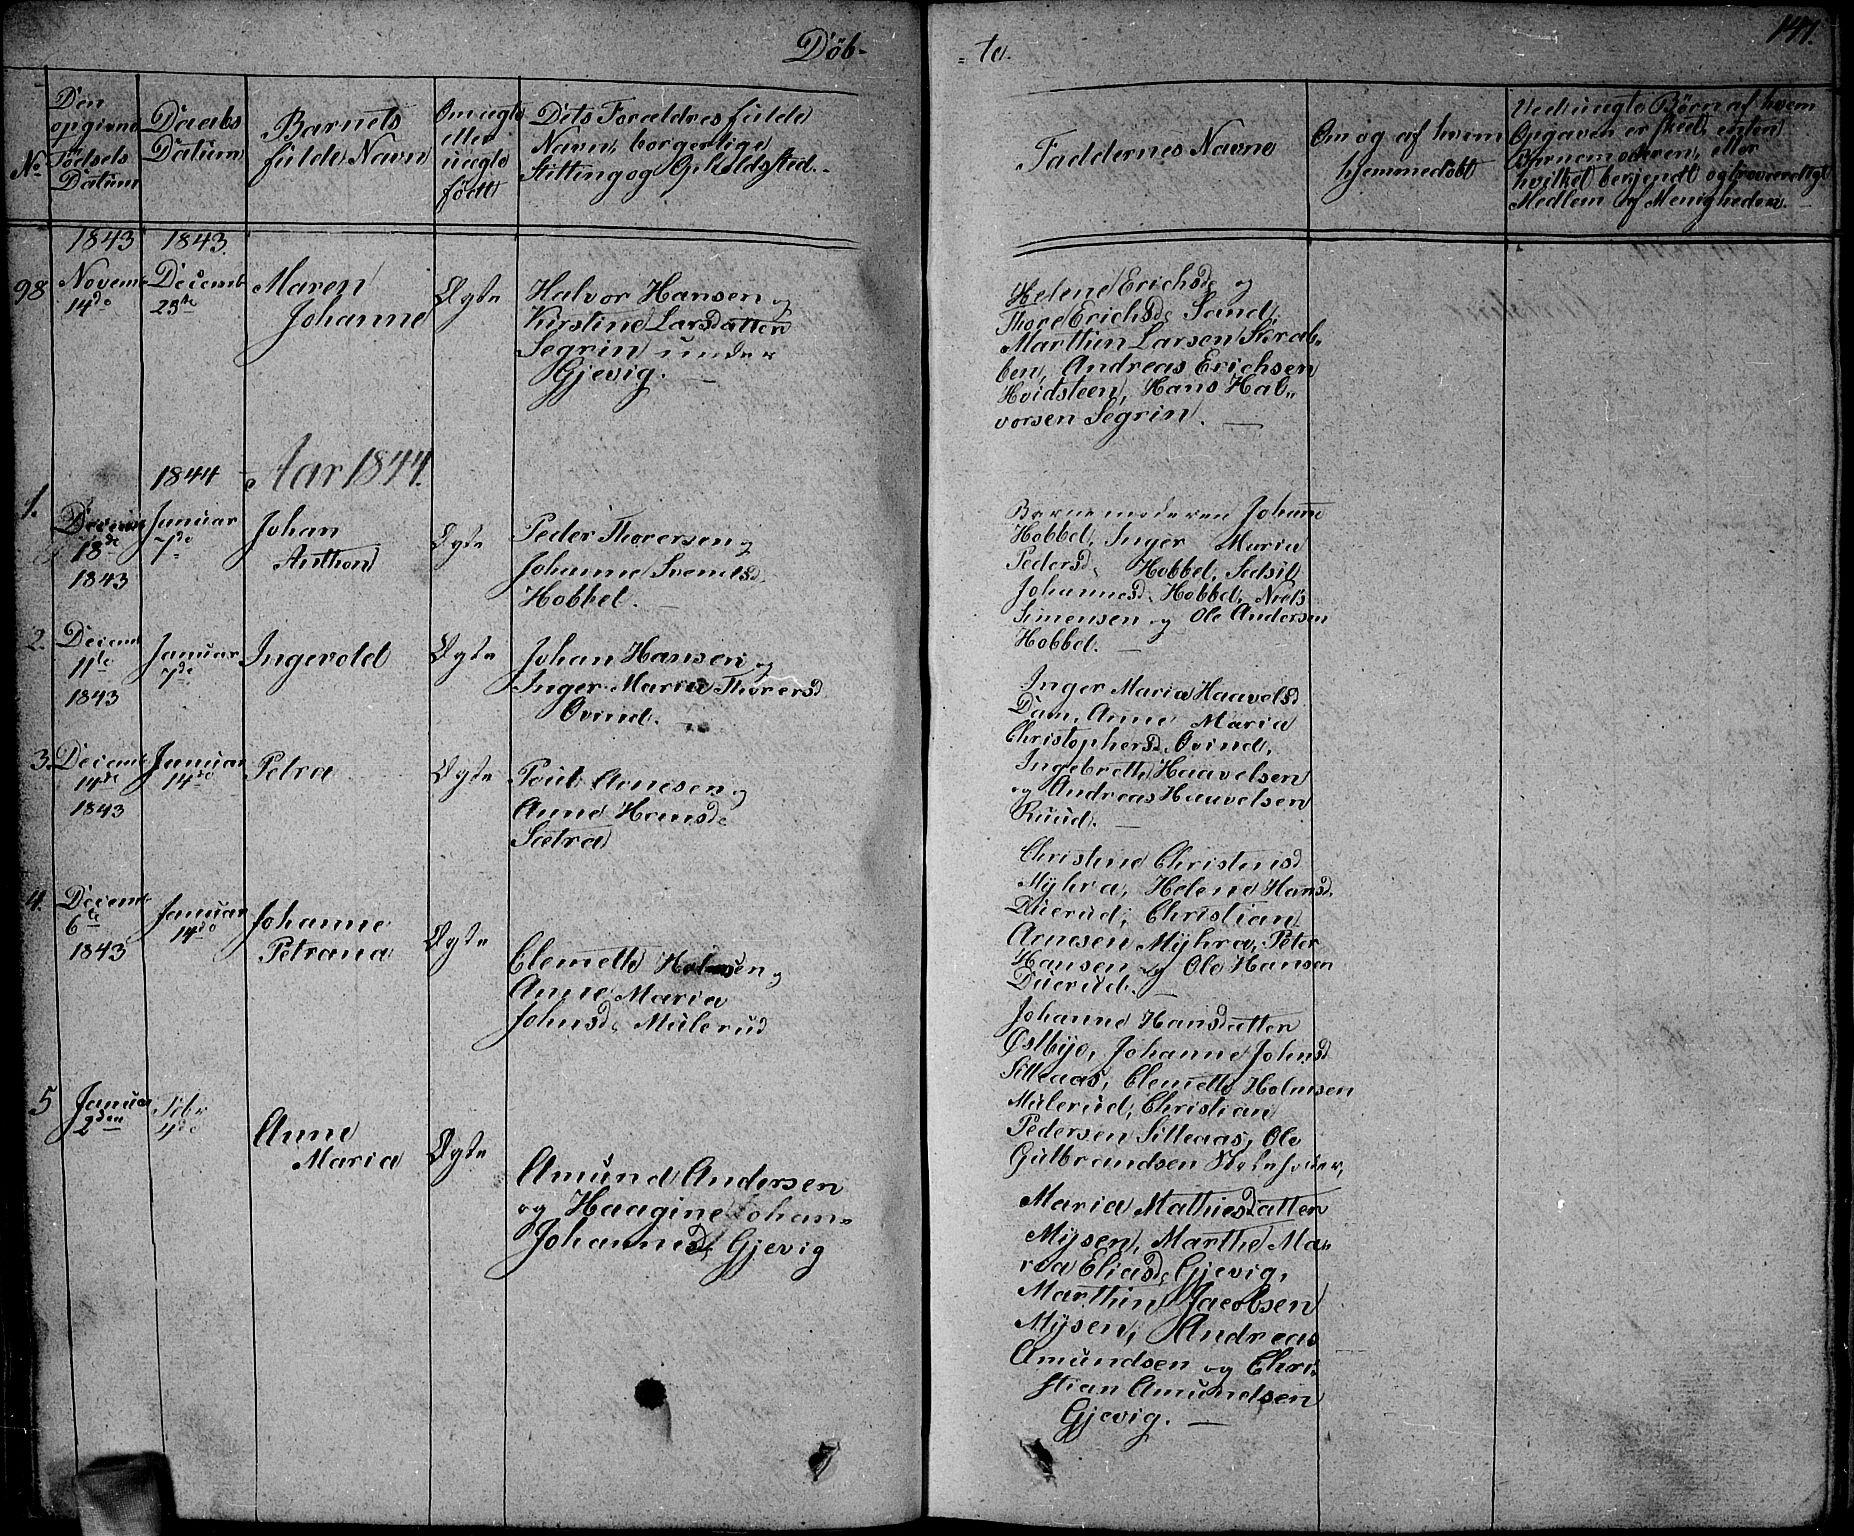 Döb-
= te.
141.
No
Den
opgivne
Födsels
Datum
Daabs
Datum
Barnets
fulde Navn
Om ægte
eller
uægte
födt
Dets Forældres fulde
Navn, borgerlige
Stilling og Opholdssted.
Faddernes Navne
Om og af hvem
hjemmedöbt
Ved uægte Börn af hvem
Opgaven er skeed, enten
Barnemoderen, eller
hvilket bekjendt og troværdigt
Medlem af Menigheden.
1843
1843.
98
Novemb
14de
Decemb
23de
Maren
Johanne
Ægte
Halvor Hansen og
Kirstine Larsdatter
Segrin under
Gjevig.
Helene Erichsd. og
Thore Erichsd. Sand,
Marthin Larsen Skrab-
ben, Andreas Erichsen
Hvidsteen, Hans Hal-
vorsen Segrin.
1844
Aar 1844.
1.
Decemb
18de
1843
Januar
7de
Johan
Anthon
Ægte
Peder Thoresen og
Johanne Svendsd.
Hobbel.
Barnemoderen Johanne
Hobbel, Inger Maria
Pedersd. Hobbel, Sidsil
Johannesd. Hobbel, Niels
Simensen og Ole Andersen
Hobbel.
2.
Decemb
11te
1843
Januar
7de
Ingevold
Ægte
Johan Hansen og
Inger Maria Thorersd
Ovind.
Inger Maria Haavelsd
Dam, Anne Maria
Christophersd. Ovind,
Ingebreth Haavelsen
og Andreas Haavelsen
Ruud.
3.
Decemb
14de
1843
Januar
14de
Petra
Ægte
Poul Arnesen og
Anne Hansd.
Sætra
Christine Christensd
Myhra, Helene Hansd
Duerud, Christian
Arnesen Myhra, Peter
Hansen og Ole Hansen
Duerud.
4.
Decemb
6te
1843
Januar
14de
Johanne
Petrana
Ægte
Clemet Holmsen og
Anne Maria
Johnsd. Mulerud
Johanne Hansdatter
Østbye, Johanne Johnsd
Silleaas, Clemet Holmsen
Mulerud, Christian
Pedersen Silleaas, Ole
Gulbrandsen
5
Januar
2den
Febr
4de
Anne
Maria
Ægte
Amund Andersen
og Haagine Johan-
Johannesd. Gjevig
Maria Mathiesdatter
Mysen, Marthe Ma-
ria Eliasd. Gjevig,
Marthin Jacobsen
Mysen, Andreas
Amundsen og Chri-
stian Amundsen
Gjevig.